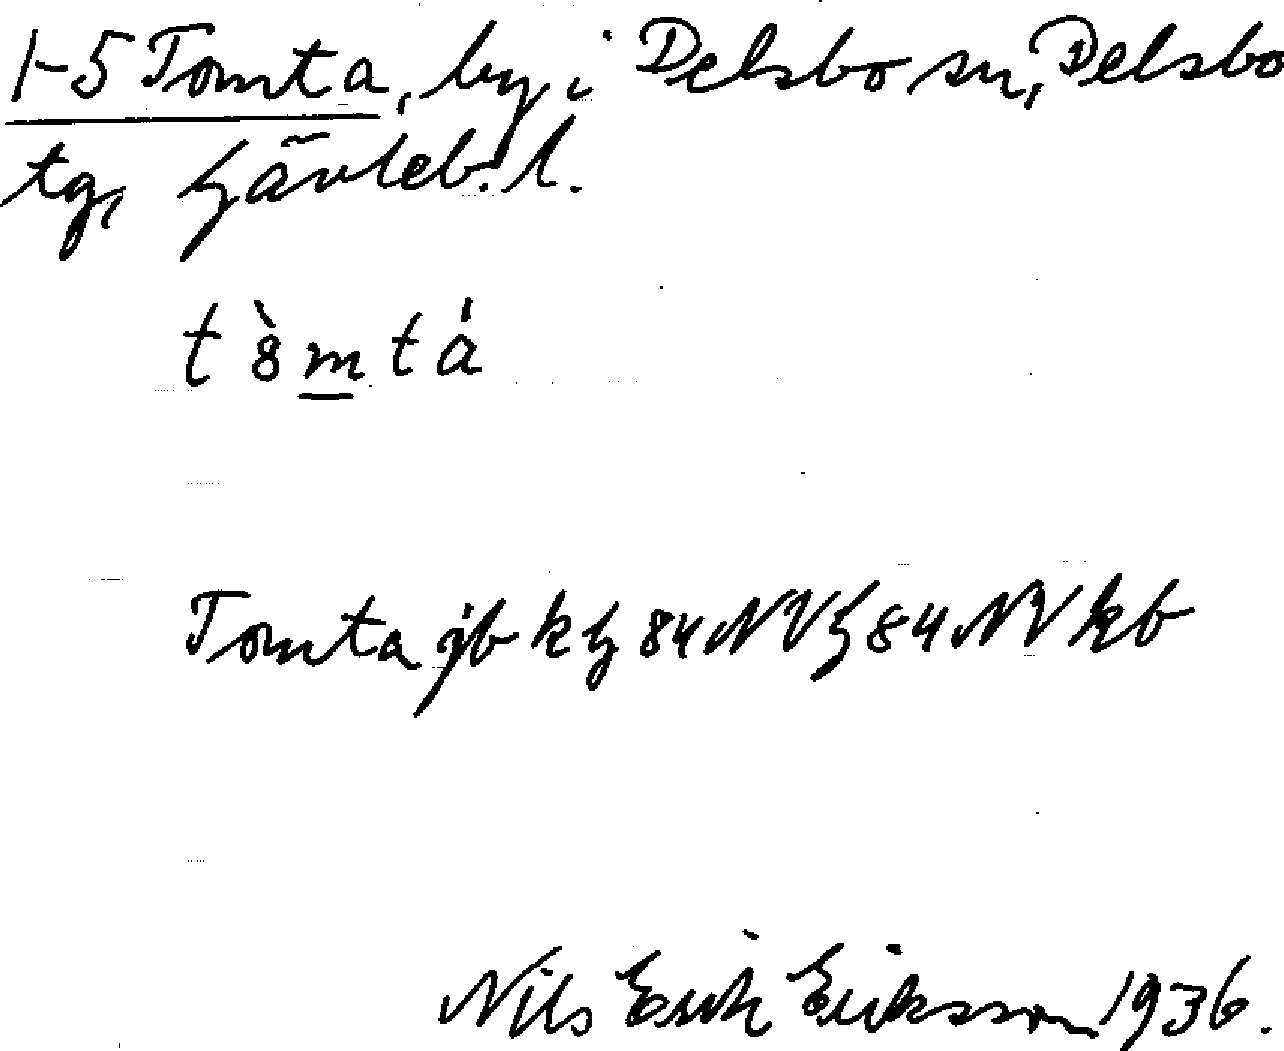 1-5 Tomta, by i Delsbo sn, Delsbo
tg, Gävleb. l.
t 8̀ m t á
Tomta jb k g 84 NV g 84 NV kb
Nils Erik Eriksson 1936.